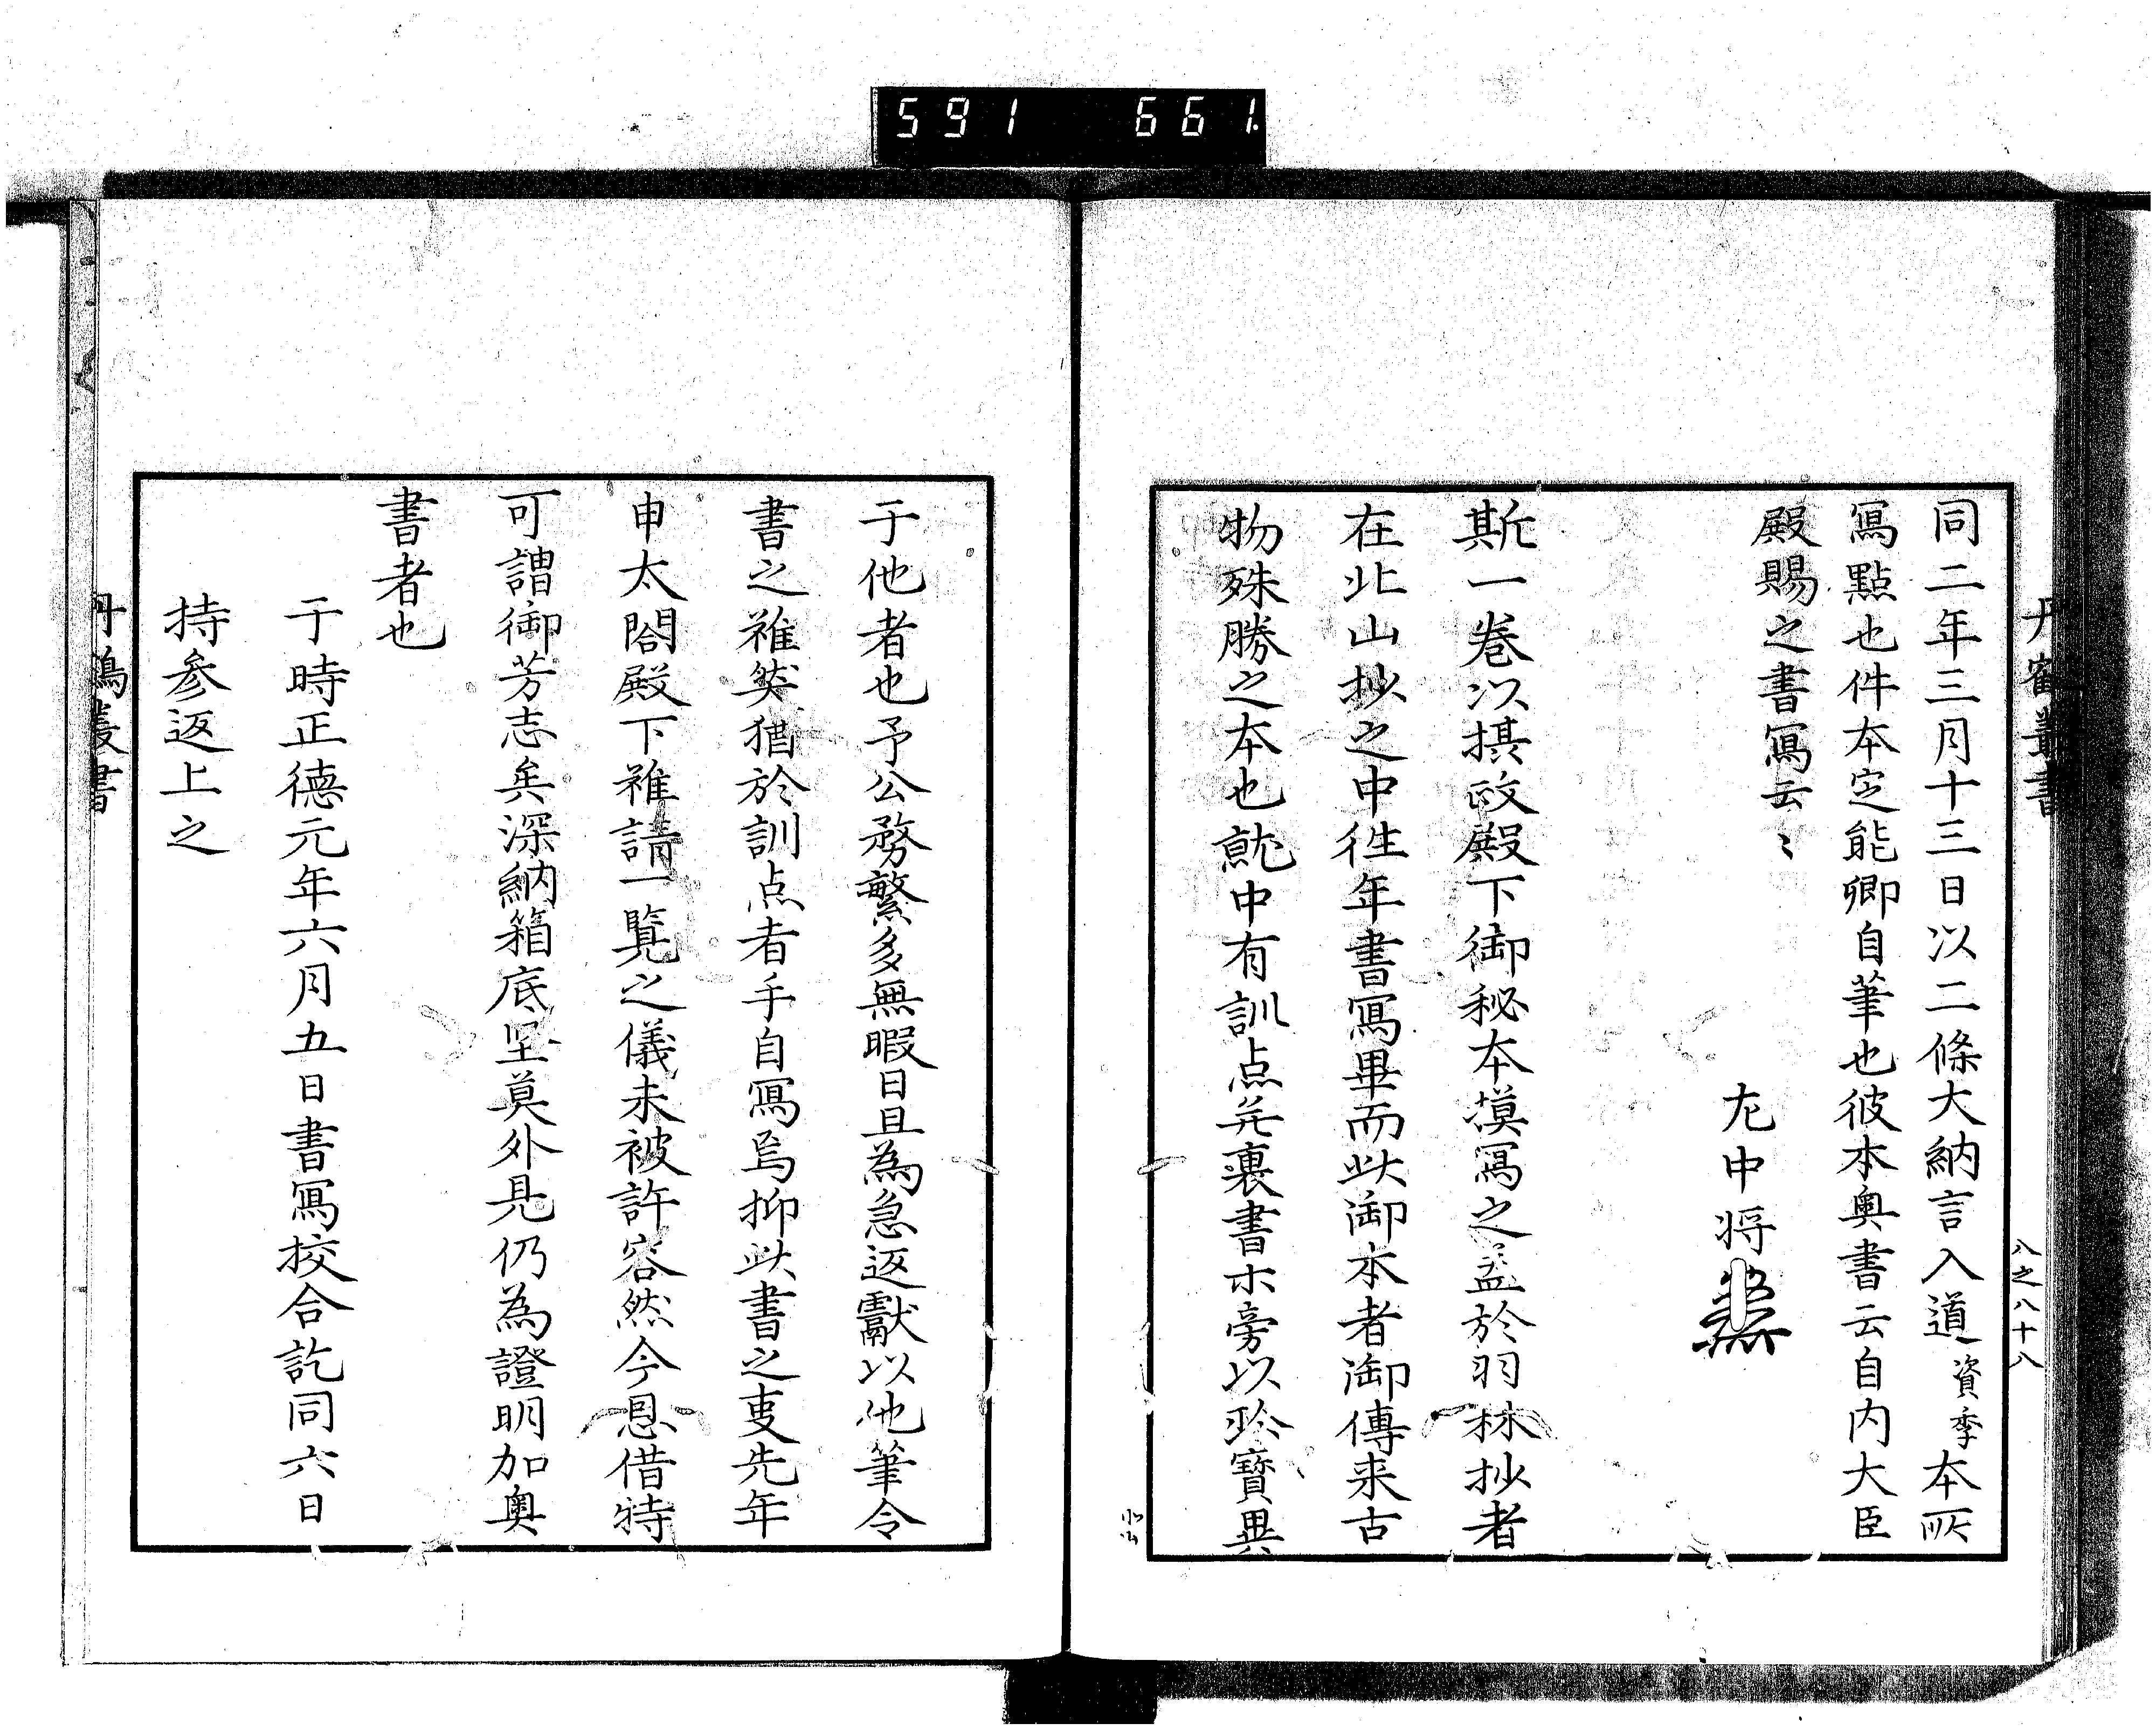 591 661.
丹鶴叢書
八之八十八
同二年三月十三日以二條大納言入道資季本所
寫點也件本定能卿自筆也彼本奥書云自内大臣
殿賜之書寫云〻
左中将
斯一卷以摂政殿下御秘本摸寫之盖於羽林抄者
在北山抄之中徃年書寫畢而此御本者御傳来古
物殊勝之本也就中有訓点并裏書等旁以珎寶異
于他者也予公務繁多無暇日且為急返獻以他筆令
書之雖然猶於訓点者手自寫焉抑此書之事先年
申太閤殿下雖請一覧之儀未被許容然今恩借特
可謂御芳志矣深納箱底堅莫外見仍為證明加奥
書者也
于時正德元年六月五日書寫校合訖同六日
持参返上之
丹鶴叢書